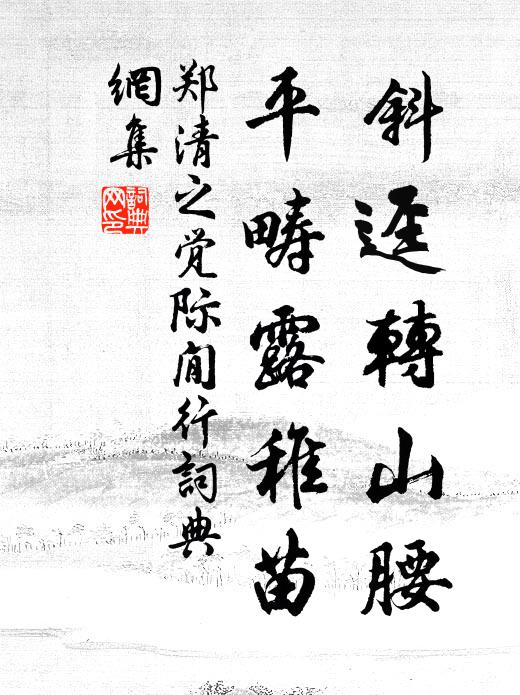 斜逕轉山腰
平疇露稚苗
郑清之觉际闲行詞典
網集
詞典
网印